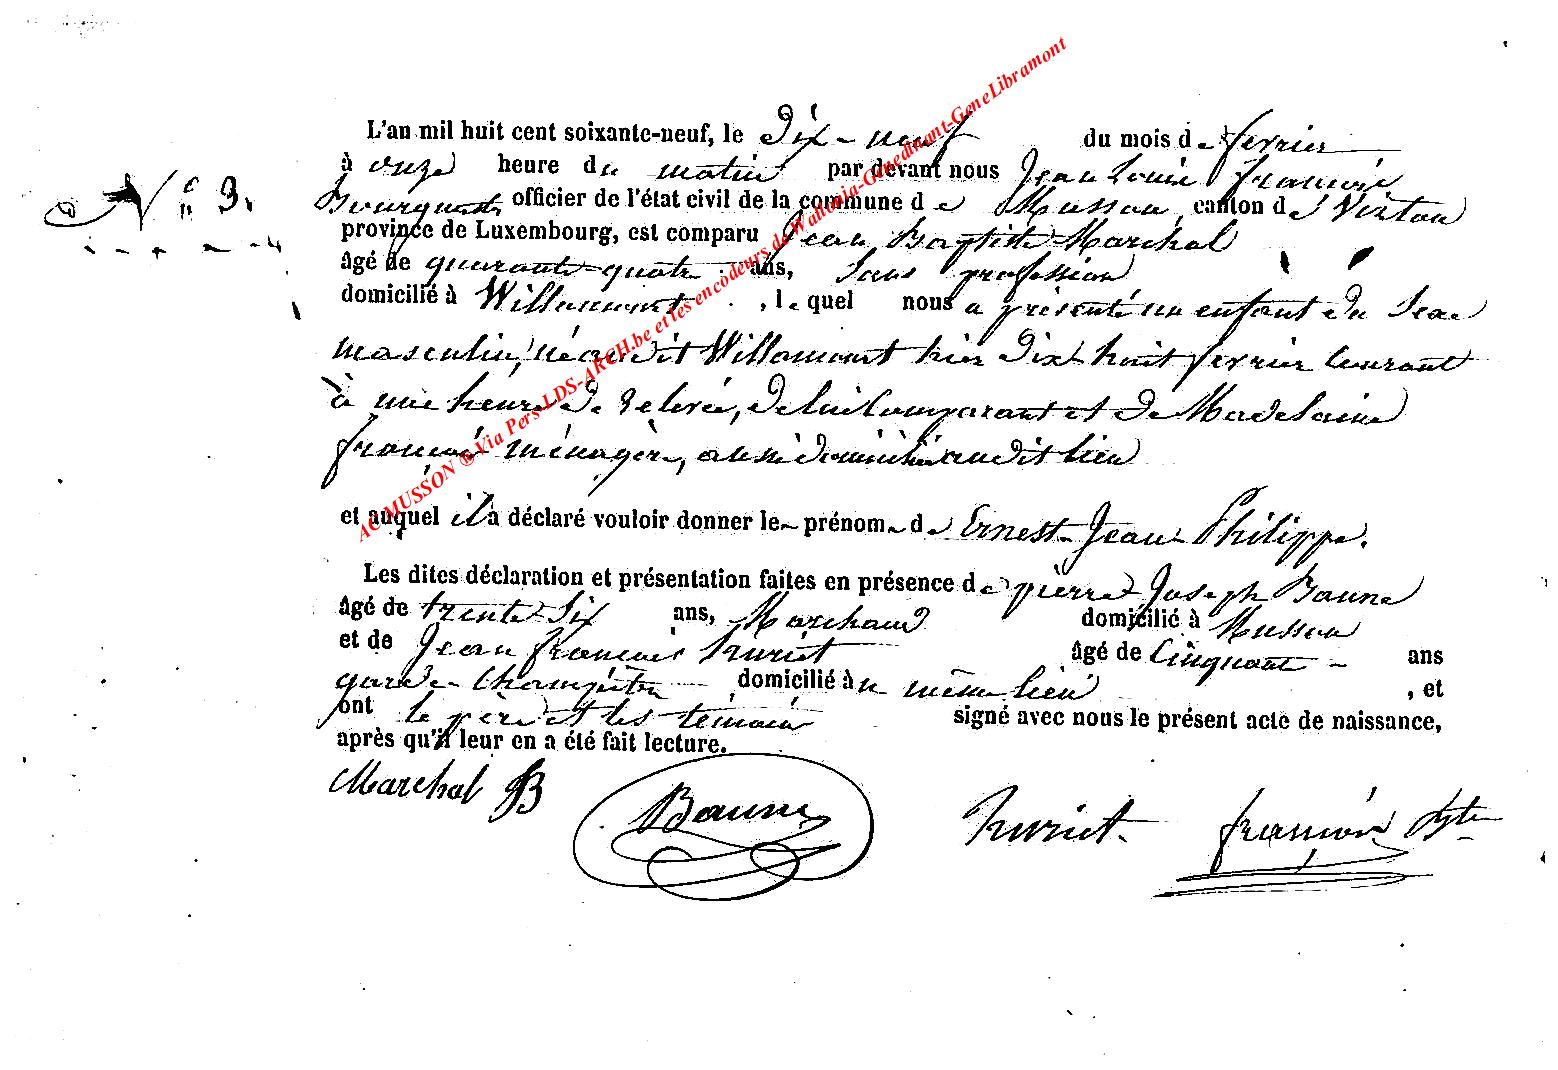 L'an mil huit cent soixante-neuf, le Dix-neuf du mois de fevrier
à onze heure du matin par devant nous Jean Louis françois
N° 3.
Bourguet officier de l'état civil de la commune de Musson, canton de Virton
province de Luxembourg, est comparu Jean Baptiste Marchal
âgé de quarante-quatre ans, Sans profession
domicilié à Willancourt, lequel nous a présenté un enfant du Sexe
masculin, né audit Willancourt hier Dix huit fevrier courant
à une heure de relevée, de lui Comparant et de Madelaine
françois ménagère, aussi domiciliée audit lieu
et auquel il a déclaré vouloir donner le prénom de Ernest Jean Philippe.
Les dites déclaration et présentation faites en présence de pierre Joseph Baune
âgé de trente Six ans, Marchand domicilié à Musson
et de Jean françois huriet âgé de Cinquante ans
garde Champêtre domicilié à u même lieu, et
ont le père et les temoins signé avec nous le présent acte de naissance,
après qu'il leur en a été fait lecture.
Marchal JB Baune huriet françois
AC MUSSON ® Via Pers-LDS-ARCH.be et les encodeurs de Wallonia-Genedinant-GeneLibramont